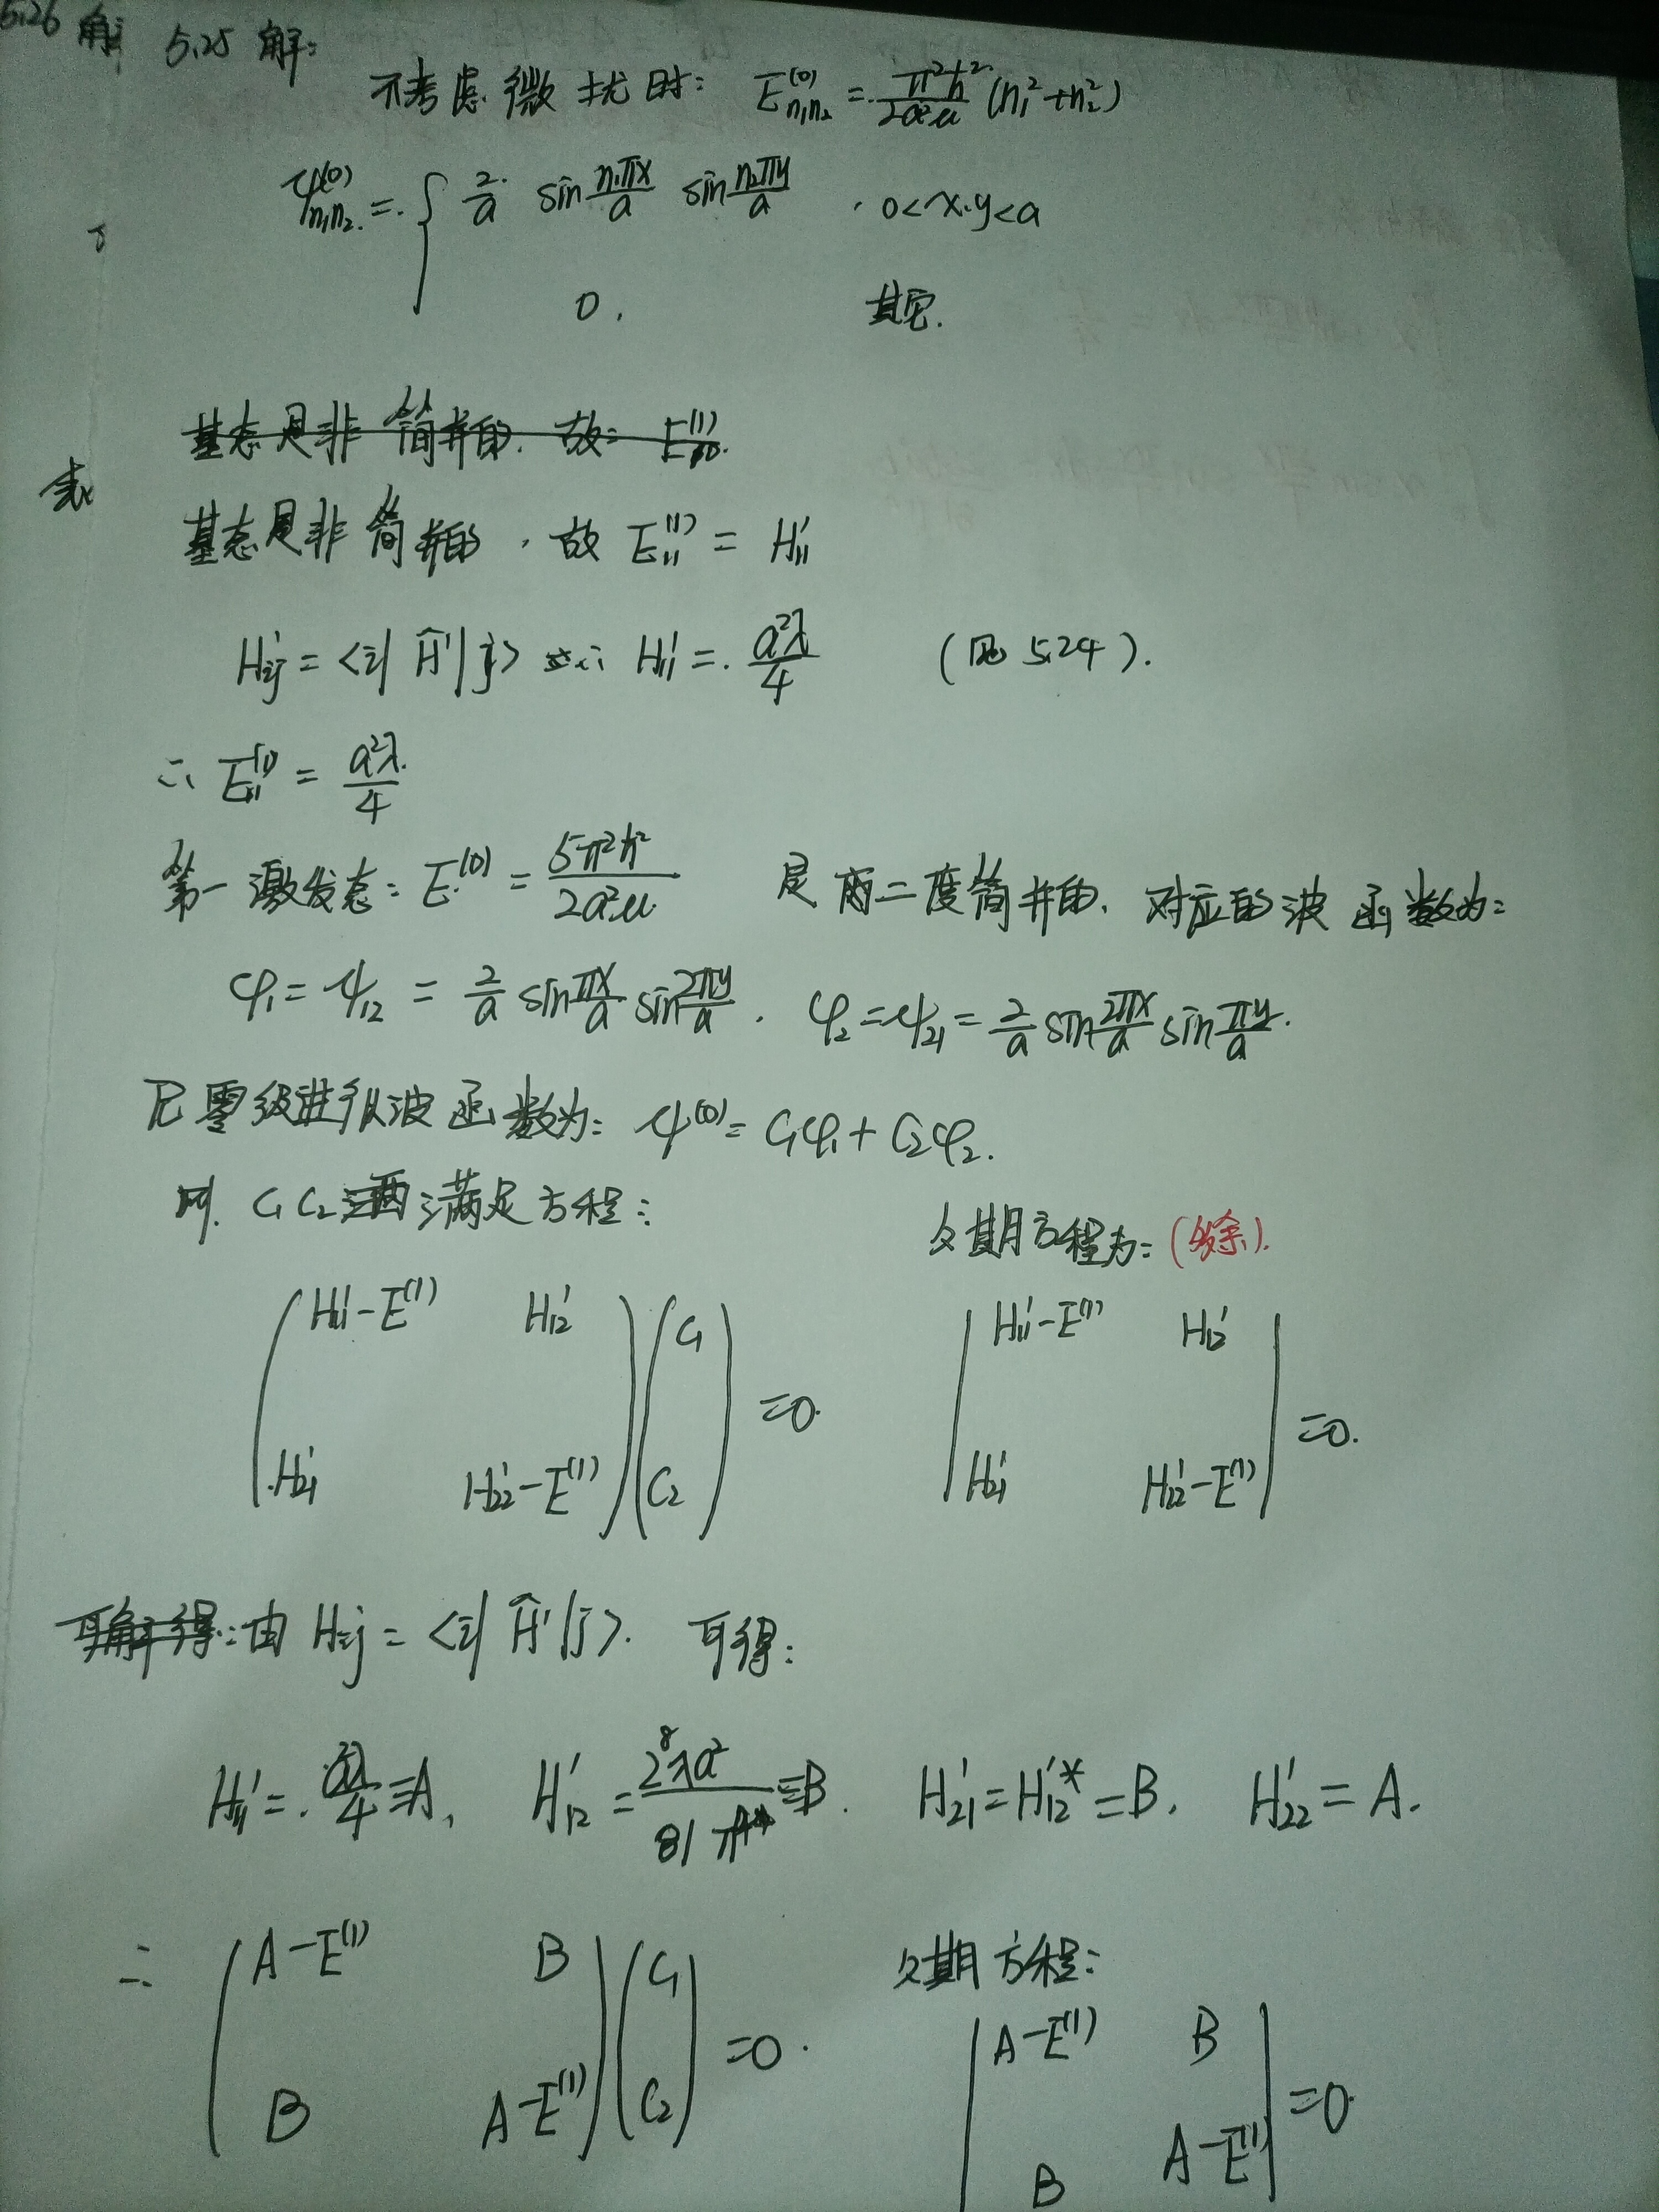 5.26 解
5.25 解:
不考虑微扰时: E_{n₁n₂}^{(0)} = π²ħ²/2a²μ (n₁²+n₂²)
ψ_{n₁n₂}^{(0)} = { 2/a sin n₁πx/a sin n₂πy/a , 0<x.y<a
0, 其它.
基态是非简并的. 故: E^{(1)}
基态是非简并的, 故 E₁₁^{(1)} = H₁₁'
H_{ij}' = <i|Ĥ'|j> ∴ H₁₁' = a²λ/4 (见 5.24).
∴ E₁₁^{(1)} = a²λ/4
第一激发态: E^{(0)} = 5π²ħ²/2a²μ 是两二度简并的. 对应的波函数为:
φ₁=ψ₁₂ = 2/a sin πx/a sin 2πy/a . φ₂=ψ₂₁= 2/a sin 2πx/a sin πy/a.
记零级近似波函数为: ψ^{(0)} = C₁φ₁ + C₂φ₂.
则. C₁ C₂ 满足方程:
久期方程为: (多余).
( H₁₁'-E^{(1)} H₁₂' ; H₂₁' H₂₂'-E^{(1)} ) ( C₁ ; C₂ ) =0.
| H₁₁'-E^{(1)} H₁₂' ; H₂₁' H₂₂'-E^{(1)} | =0.
可解得: 由 H_{ij} = <i|Ĥ'|j>. 可得:
H₁₁' = a²λ/4 ≡A, H₁₂' = 2⁸λa²/81π⁴ ≡B. H₂₁'=H₁₂'*=B, H₂₂'=A.
∴ ( A-E^{(1)} B ; B A-E^{(1)} ) ( C₁ ; C₂ ) =0.
久期方程:
| A-E^{(1)} B ; B A-E^{(1)} | =0